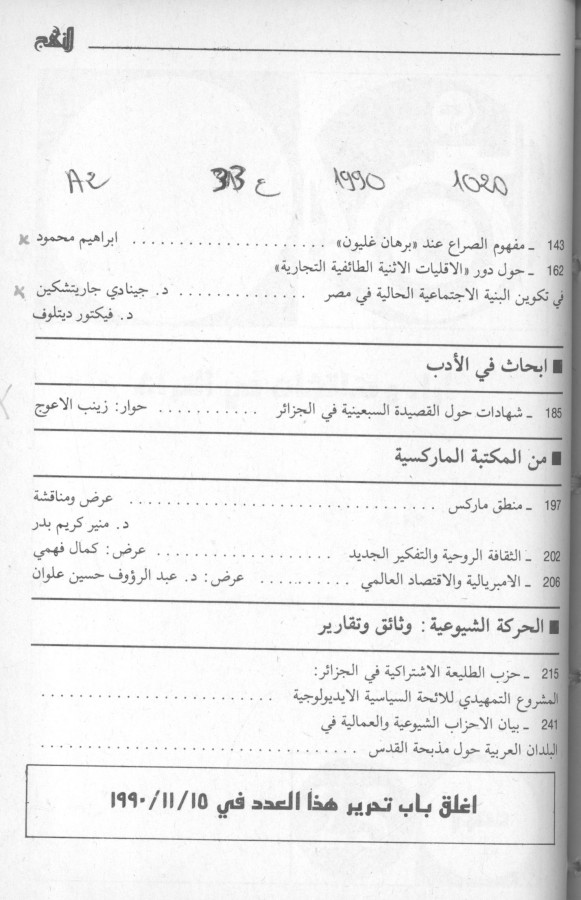 النهج
1020 1990 ع 33 A2
143 ـ مفهوم الصراع عند «برهان غليون» . . . . . . . . . . . . . . . . . . . . . ابراهيم محمود
162 ـ حول دور «الاقليات الاثنية الطائفية التجارية»
في تكوين البنية الاجتماعية الحالية في مصر . . . . . . . . . . . . . . د. جينادي جاريتشكين
د. فيكتور ديتلوف
■ ابحاث في الأدب
185 ـ شهادات حول القصيدة السبعينية في الجزائر . . . . . . . . . . . حوار: زينب الاعوج
■ من المكتبة الماركسية
197 ـ منطق ماركس . . . . . . . . . . . . . . . . . . . . . . . . . . . . . . . . . عرض ومناقشة
د. منير كريم بدر
202 ـ الثقافة الروحية والتفكير الجديد . . . . . . . . . . . . . . . . . . . عرض: كمال فهمي
206 ـ الامبريالية والاقتصاد العالمي . . . . . . . . . . . عرض: د. عبد الرؤوف حسين علوان
■ الحركة الشيوعية: وثائق وتقارير
215 ـ حزب الطليعة الاشتراكية في الجزائر:
المشروع التمهيدي للائحة السياسية الايديولوجية . . . . . . . . . . . . . . . . . . . . . . . . .
241 ـ بيان الاحزاب الشيوعية والعمالية في
البلدان العربية حول مذبحة القدس . . . . . . . . . . . . . . . . . . . . . . . . . . . . . . . . . .
اغلق باب تحرير هذا العدد في ١٩٩٠/١١/١٥